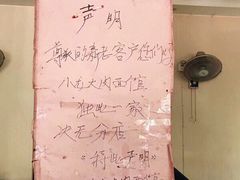 声明
尊敬的新老客户您们好
小尤大肉面馆
独此一家
决无分店
"特此声明"